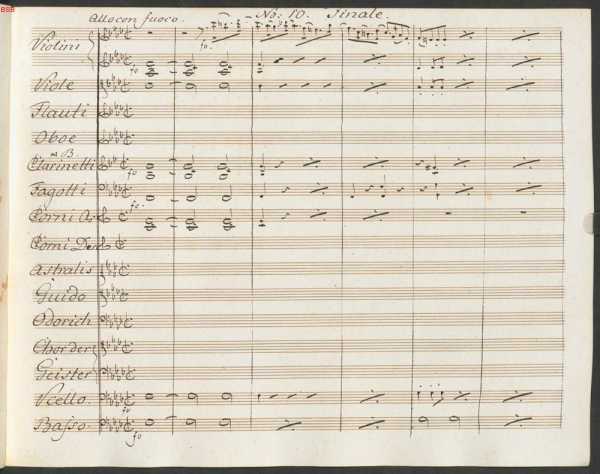 BSB
Allo con fuoco. No: 10. Finale
Violini
fo.
fo
Viole
Flauti
Oboe
in B.
Clarinetti
fo
Fagotti
fo
Corni As
Corni Des
Astralis
Guido
Odorich
Chor der
Geister
Vcello.
fo
Basso.
fo